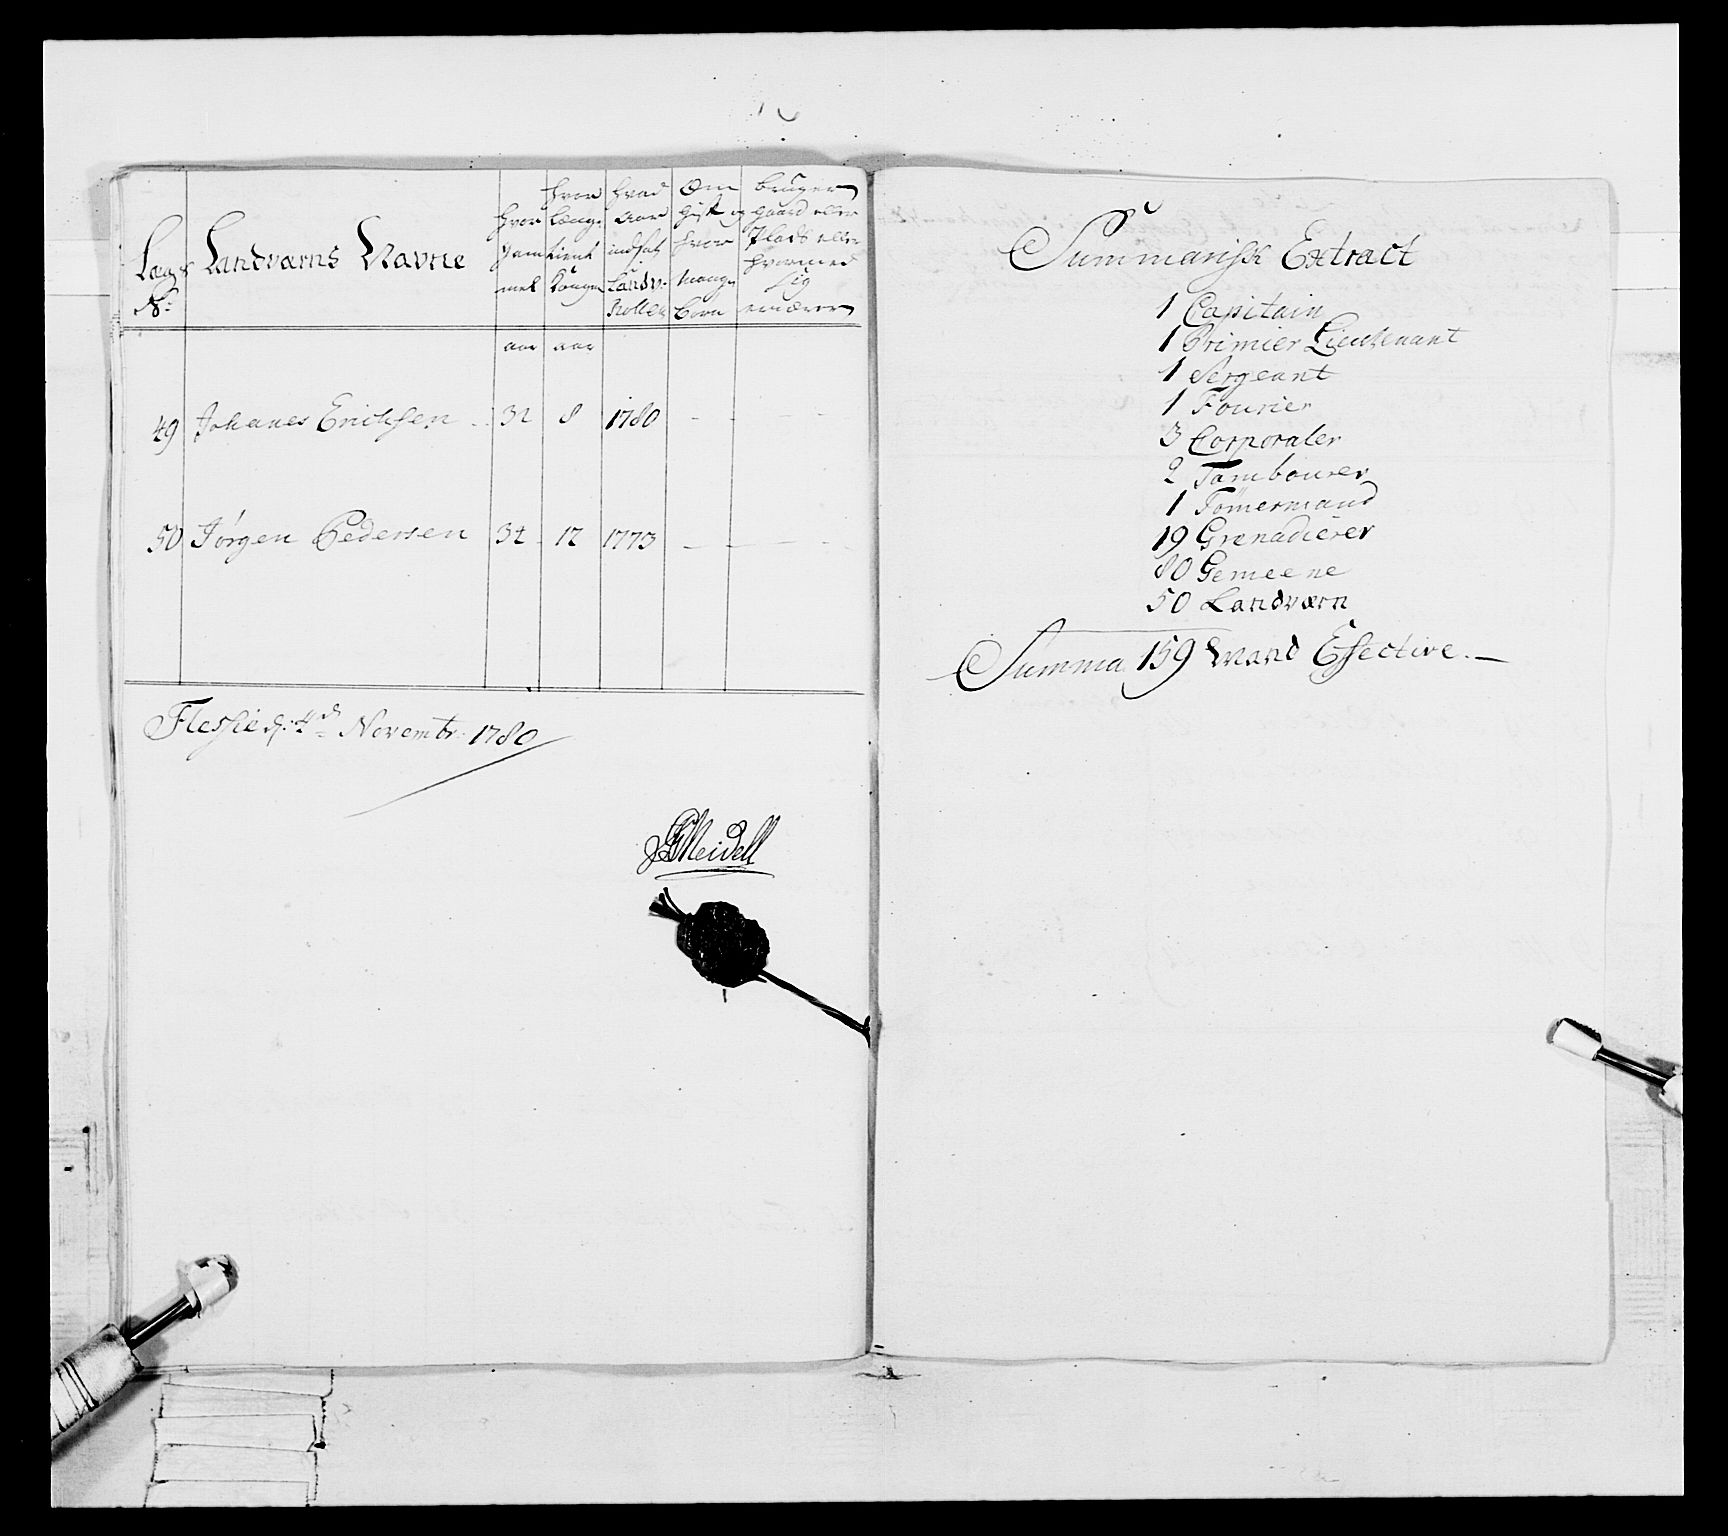 Lægs No:
Landværns Navne
hvor gammel
hvor længe tient Kongen
hvad Aar indsat Landv. Rollen
Om gift og hvor mange Børn
bruger gaard eller Plads eller hvormed sig ernærer
aar aar
49 Johanes Erichsen 32 8 1780 - -
50 Jørgen Pedersen 34 12 1773 - -
Flessie d: 4de Novembr: 1780
Meidell
Summarisk Extract
1 Capitain
1 Primier Lieutenant
1 Sergeant
1 Fourier
3 Corporaler
2 Tambourer
1 Tømermand
19 Grenadierer
80 Gemeene
50 Landværn
Summa 159 Mand Effective.-